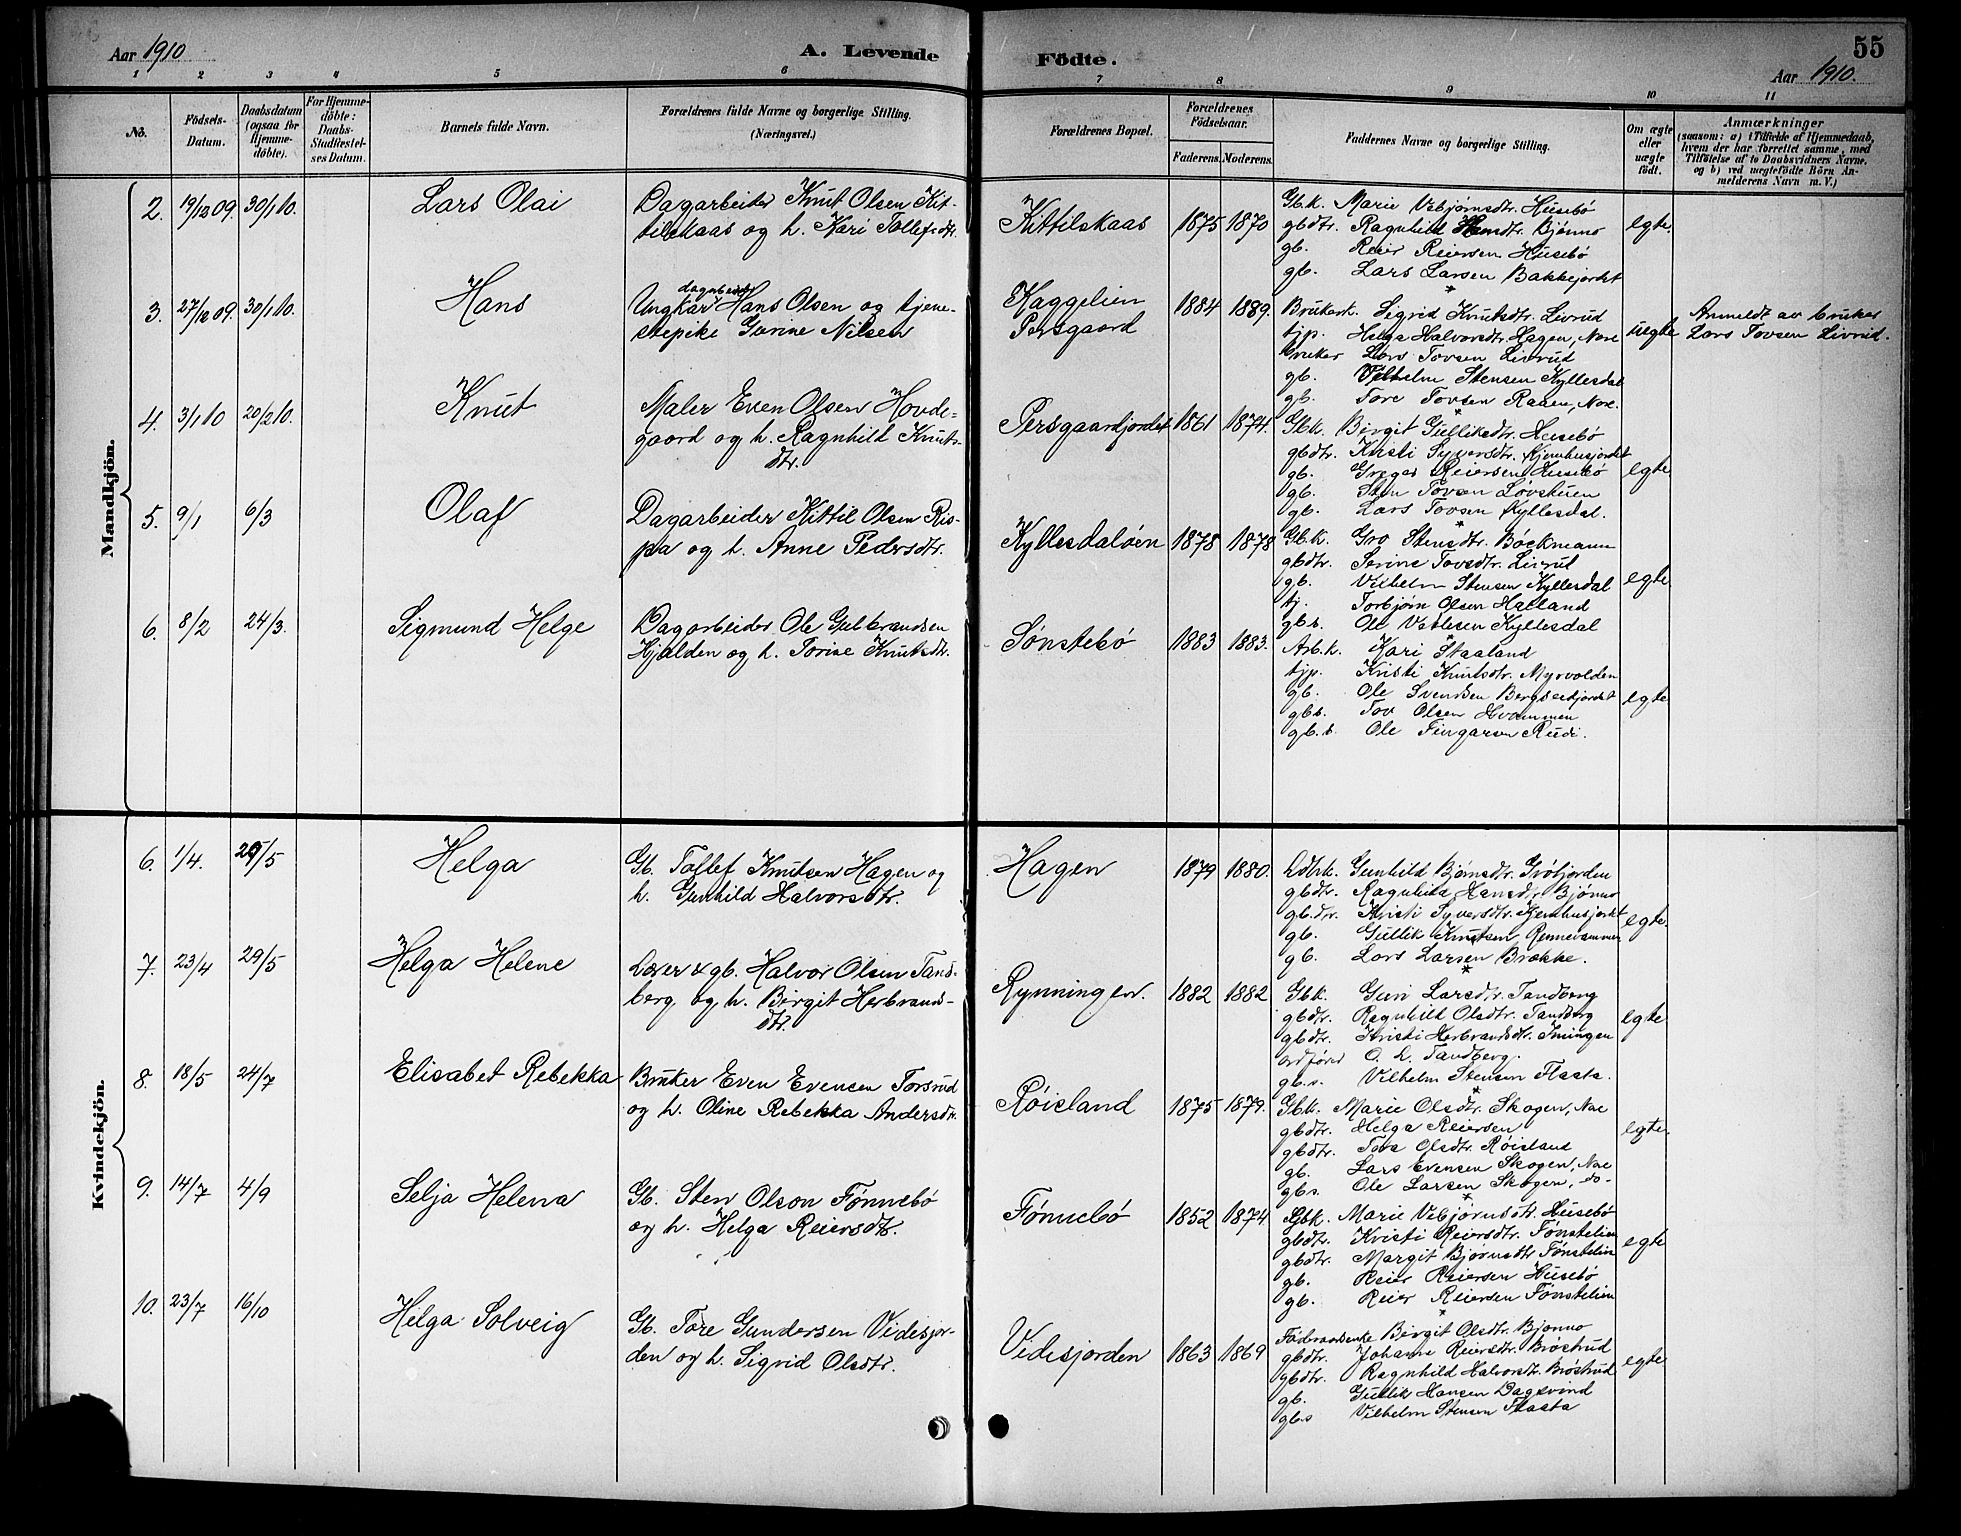 Aar 1910
A. Levende
Födte.
55
Aar 1910.
1 2 3 4 5 6 7 8 9 10 11
No.
Födsels-
Datum.
Daabsdatum
(ogsaa for
Hjemme-
döbte).
For Hjemme-
döbte:
Daabs-
Stadfæstel-
ses Datum.
Barnets fulde Navn.
Forældrenes fulde Navne og borgerlige Stilling.
(Næringsvei.)
Forældrenes Bopæl.
Forældrenes
Födselsaar.
Faderens. Moderens.
Faddernes Navne og borgerlige Stilling.
Om ægte
eller
uægte
födt.
Anmærkninger
(saasom: a) i Tilfælde af Hjemmedaab,
hvem der har forrettet samme, med
Tilföielse af to Daabsvidners Navne,
og b) ved uægtefödte Börn An-
melderens Navn m. V.)
Mandkjön.
2. 19/12 09. 30/1 10. Lars Olai
Dagarbeider Knut Olsen Kit-
tilskaas og h. Kari Tollefsdtr.
Kittilskaas 1875 1870
Gb.k. Marie Vebjørnsdtr. Husebö
gbdtr. Ragnhild Hansdtr. Bjønno
gb. Reier Reiersen Husebö
gb. Lars Larsen Bakkejordet
egte.
3. 27/12 09. 30/1 10. Hans
dagarbeider
Ungkar Hans Olsen og tjene-
stepike Gurine Nilsen
Kaggelien
Persgaard
1884 1889.
Brukerk. Sigrid Knutsdtr. Livrud
tjp. Helga Halvorsdtr. Hagen, Nore
bruker Lars Tovsen Livrud
gb. Vilhelm Stensen Kyllesdal
gb. Tore Tovsen Raaen, Nore.
uegte
Anmeldt av bruker
Lars Tovsen Livrud.
4. 3/1 10 20/2 10. Knut
Maler Even Olsen Hovde-
gaard og h. Ragnhild Knuts-
dtr.
Persgaardjordet 1861 1874.
Gb.k. Birgit Gulliksdtr. Husebö
gbdtr. Kristi Syversdtr. Kjemhusjordet
gb. Gregar Reiersen Husebö
gb. Sten Tovsen Løvstuen
gb. Lars Tovsen Kyllesdal.
egte
5. 9/1 6/3 Olaf
Dagarbeider Kittil Olsen Ris-
pa og h. Anne Pedersdtr.
Kyllesdaløen 1878 1878
Gb.k. Gro Stensdtr. Bøckmann
gbdtr. Torine Tovsdtr. Livrud
gb. Vilhelm Stensen Kyllesdal
tj. Torbjörn Olsen Halland
gbs. Ole Vetlesen Kyllesdal
egte
6. 8/2 24/3. Sigmund Helge
Dagarbeider Ole Gulbrandsen
Hjalden og h. Torine Knutsdtr.
Sønstebö 1883 1883.
Arb.k. Kari Staaland
tjp. Kristi Knutsdtr. Myrvolden
gb. Ole Svendsen Bergseidjordet
gbs. Tov Olsen Hvammen
gb.s. Ole Fingarsen Rudi.
egte
Kvindekjön.
6. 1/4. 29/5 Helga
Gb. Tollef Knutsen Hagen og
h. Gunhild Halvorsdtr.
Hagen 1879 1880.
Gunhild Bjørnsdtr. Gröfjorden
gbdtr. Ragnhild Hansdtr. Bjönno
gb.dtr. Kristi Syversdtr. Kjemhusjordet
gb. Gullik Knutsen Rennevammen
gb. Lars Larsen Brække.
egte.
7. 23/4 29/5 Helga Helene
Lærer & gb. Halvor Olsen Tand-
berg og h. Birgit Herbrands-
dtr.
Rynningen. 1882 1882
Gb.k. Guri Larsdtr. Tandberg
gbdtr. Ragnhild Olsdtr. Tandberg
gbdtr. Kristi Herbrandsdtr. Imingen
ordfører O. L. Tandberg.
gb.s. Vilhelm Stensen Flaata.
egte
8. 18/5 24/7 Elisabet Rebekka
Bruker Even Evensen Torsrud
og h. Oline Rebekka Andersdtr.
Røisland 1875 1879.
Gbk. Marie Olsdtr. Skogen, Nore
gbdtr. Helga Reiersen
gbdtr. Tova Olsdtr. Röisland
gb. Lars Evensen Skogen, Nore
gbs. Ole Larsen Skogen, -do-
egte.
9. 14/7 4/9 Selja Helena
Gb. Sten Olson Fønnebö
og h. Helga Reiersdtr.
Fønnebö 1852 1874
Gbk. Marie Vebjørnsdtr. Husebö
gbdtr. Kristi Reiersdtr. Fønstelien
gbdtr. Margit Bjørnsdtr. Fønstelien
gb. Reier Reiersen Husebö
gb. Reier Reiersen Fønstelien
egte
10. 23/7 16/10 Helga Solveig
Gb. Tore Gundersen Videsjor-
den og h. Sigrid Olsdtr.
Videsjorden 1863 1869
Föderaadsenke Birgit Olsdtr. Bjønno
gbdtr. Johanne Reiersdtr. Bröstrud
gbdtr. Ragnhild Halvorsdtr. Bröstrud
gb. Gullik Hansen Dagsvind
gb.s Vilhelm Stensen Flaata
egte